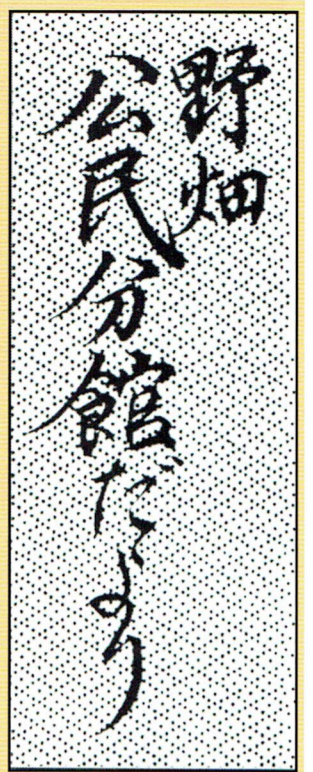 野畑
公民分館だより